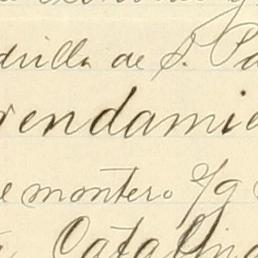 drilla de S. Pa
rendamie
e montero y/g
Catalina